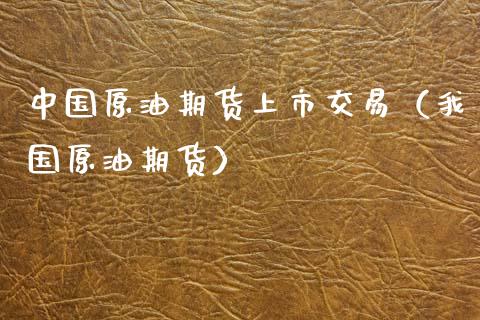 中国原油期货上市交易（我
国原油期货）